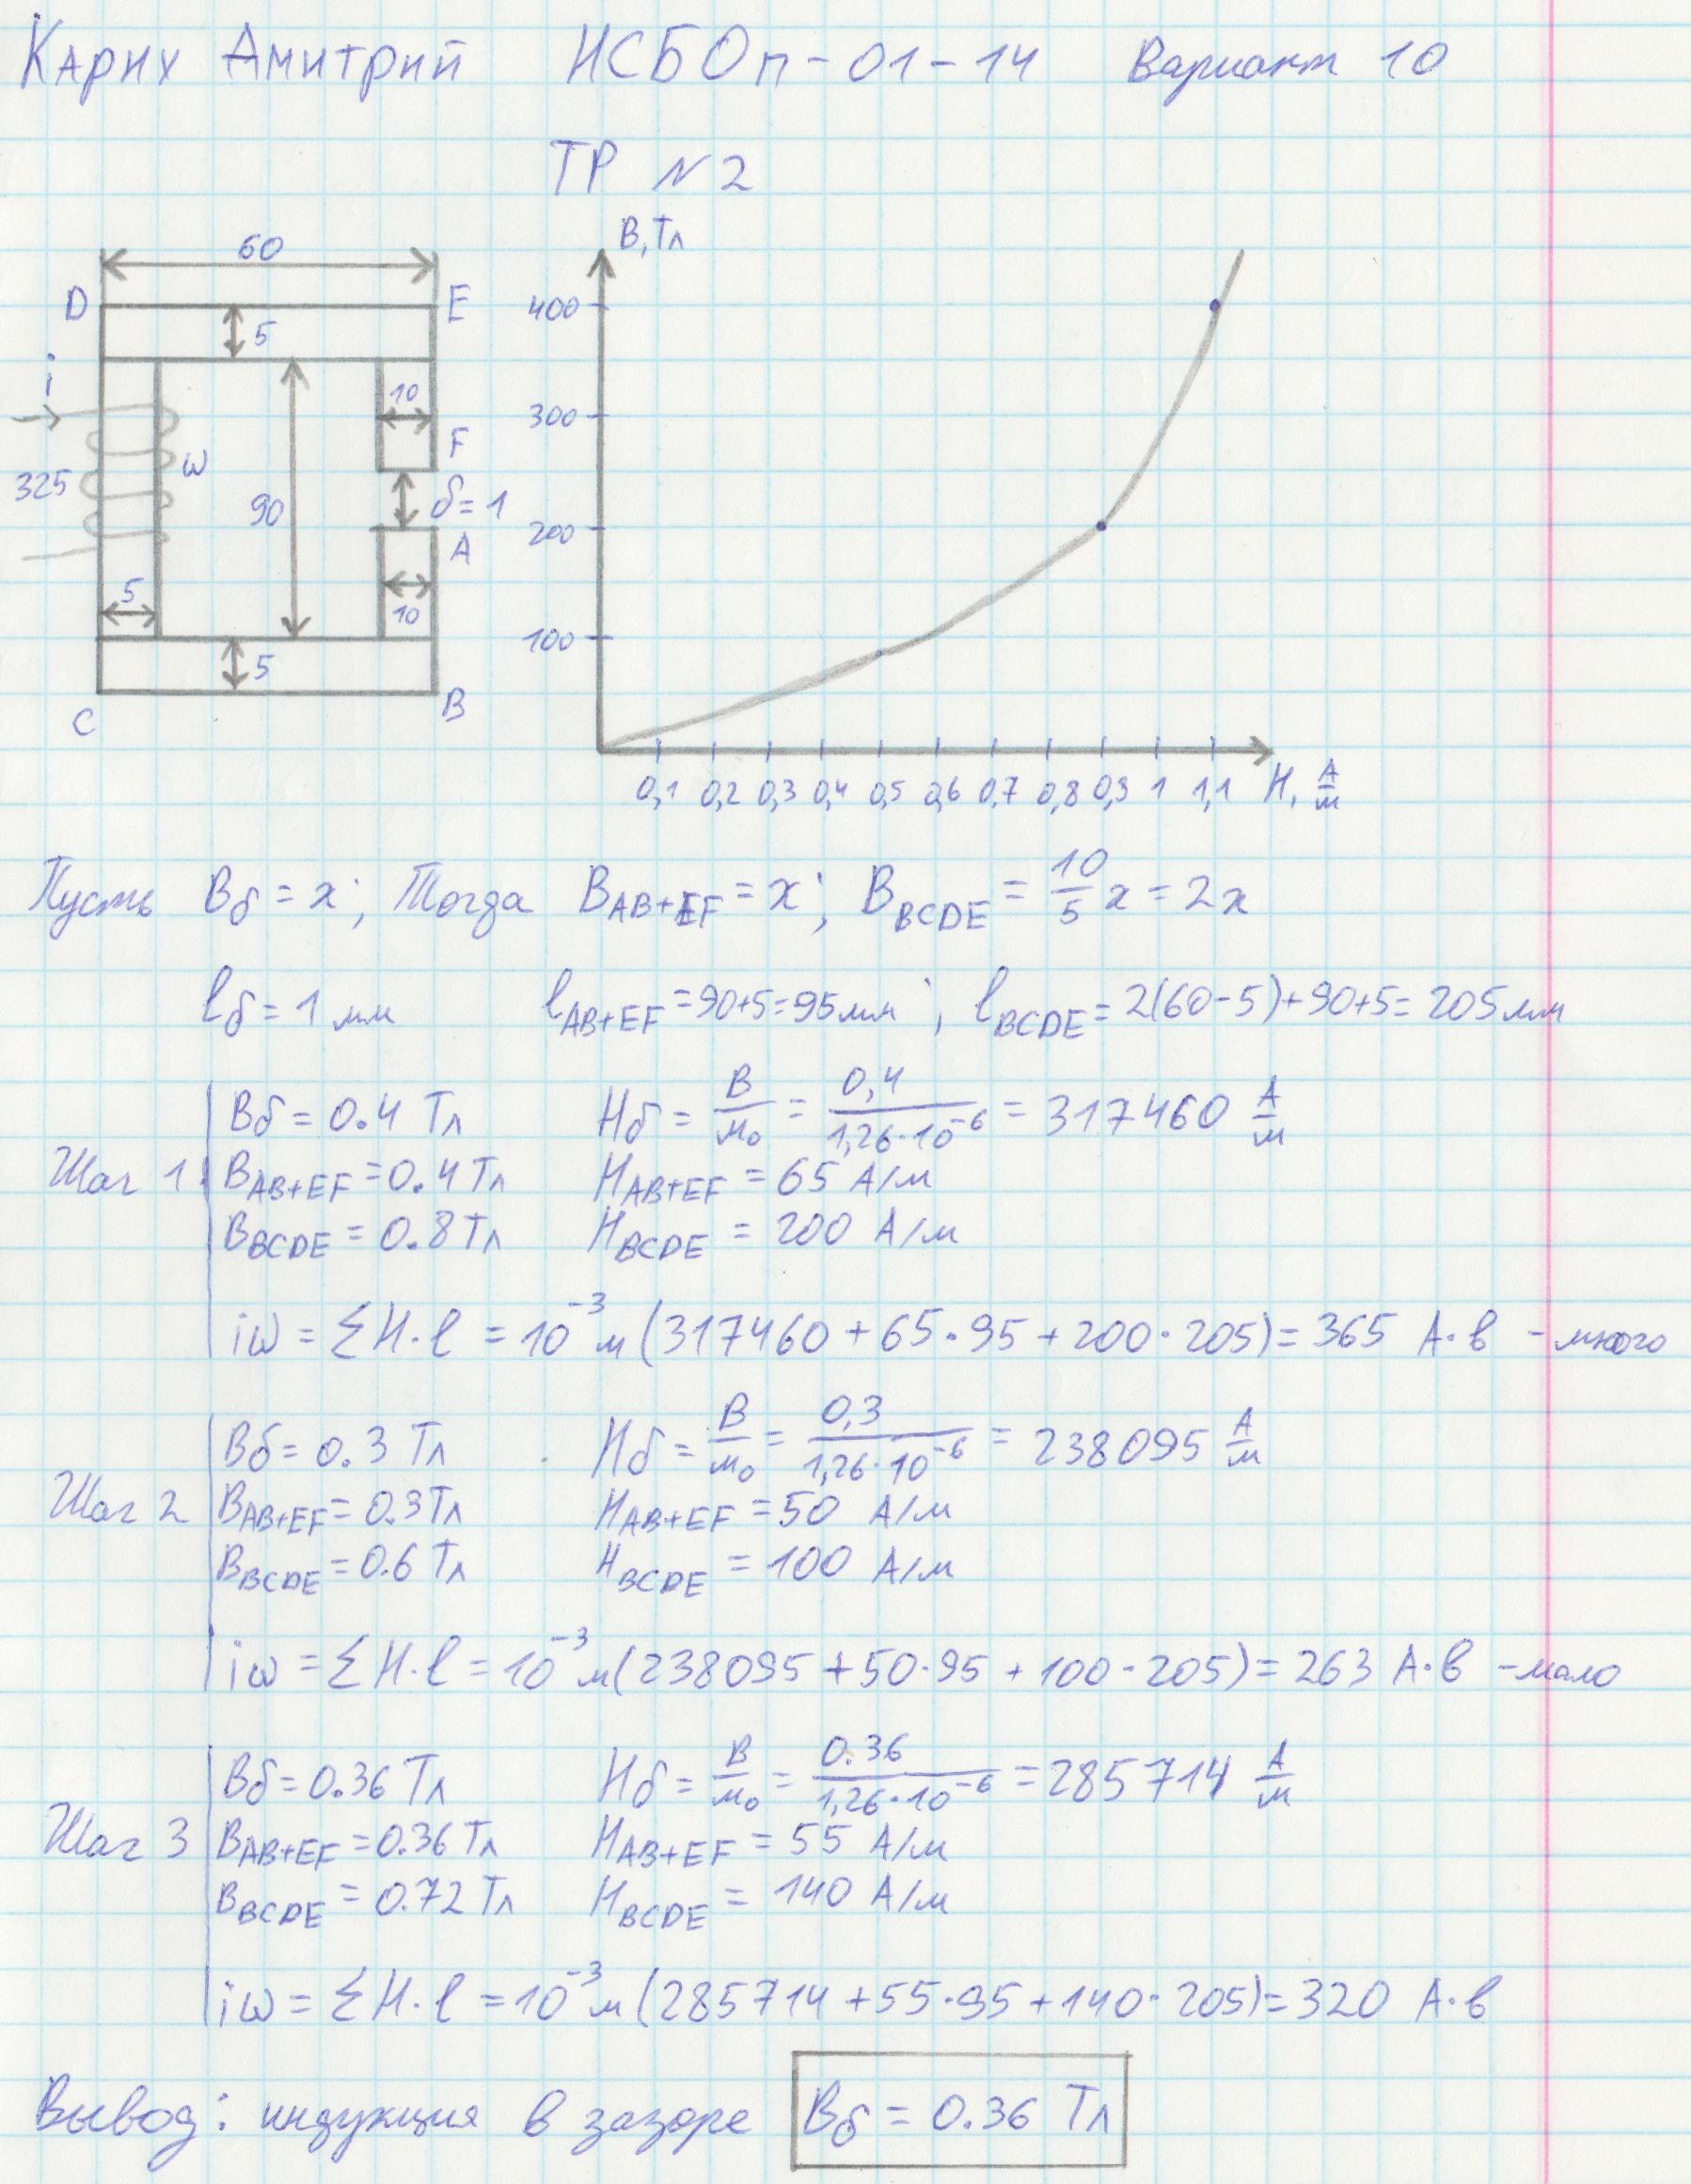 Карих Дмитрий ИСБОп-01-14 Вариант 10
ТР N2
60
D E
5
i
10
F
325 ω
90
δ=1
A
5
10
5
C B
B,Тл
400
300
200
100
0,1 0,2 0,3 0,4 0,5 0,6 0,7 0,8 0,9 1 1,1 H, А/м
Пусть Bδ = x; Тогда B_AB+EF = x; B_BCDE = 10/5 x = 2x
lδ = 1 мм l_AB+EF = 90+5 = 95мм; l_BCDE = 2(60-5)+90+5 = 205мм
Шаг 1
Bδ = 0.4 Тл Hδ = B/μ₀ = 0,4/1,26·10⁻⁶ = 317460 А/м
B_AB+EF = 0.4 Тл H_AB+EF = 65 А/м
B_BCDE = 0.8 Тл H_BCDE = 200 А/м
iω = ΣH·l = 10⁻³м(317460 + 65·95 + 200·205) = 365 А·в - много
Шаг 2
Bδ = 0.3 Тл Hδ = B/μ₀ = 0,3/1,26·10⁻⁶ = 238095 А/м
B_AB+EF = 0.3Тл H_AB+EF = 50 А/м
B_BCDE = 0.6 Тл H_BCDE = 100 А/м
iω = ΣH·l = 10⁻³м(238095 + 50·95 + 100·205) = 263 А·в - мало
Шаг 3
Bδ = 0.36 Тл Hδ = B/μ₀ = 0.36/1,26·10⁻⁶ = 285714 А/м
B_AB+EF = 0.36 Тл H_AB+EF = 55 А/м
B_BCDE = 0.72 Тл H_BCDE = 140 А/м
iω = ΣH·l = 10⁻³м(285714 + 55·95 + 140·205) = 320 А·в
Вывод: индукция в зазоре Bδ = 0.36 Тл